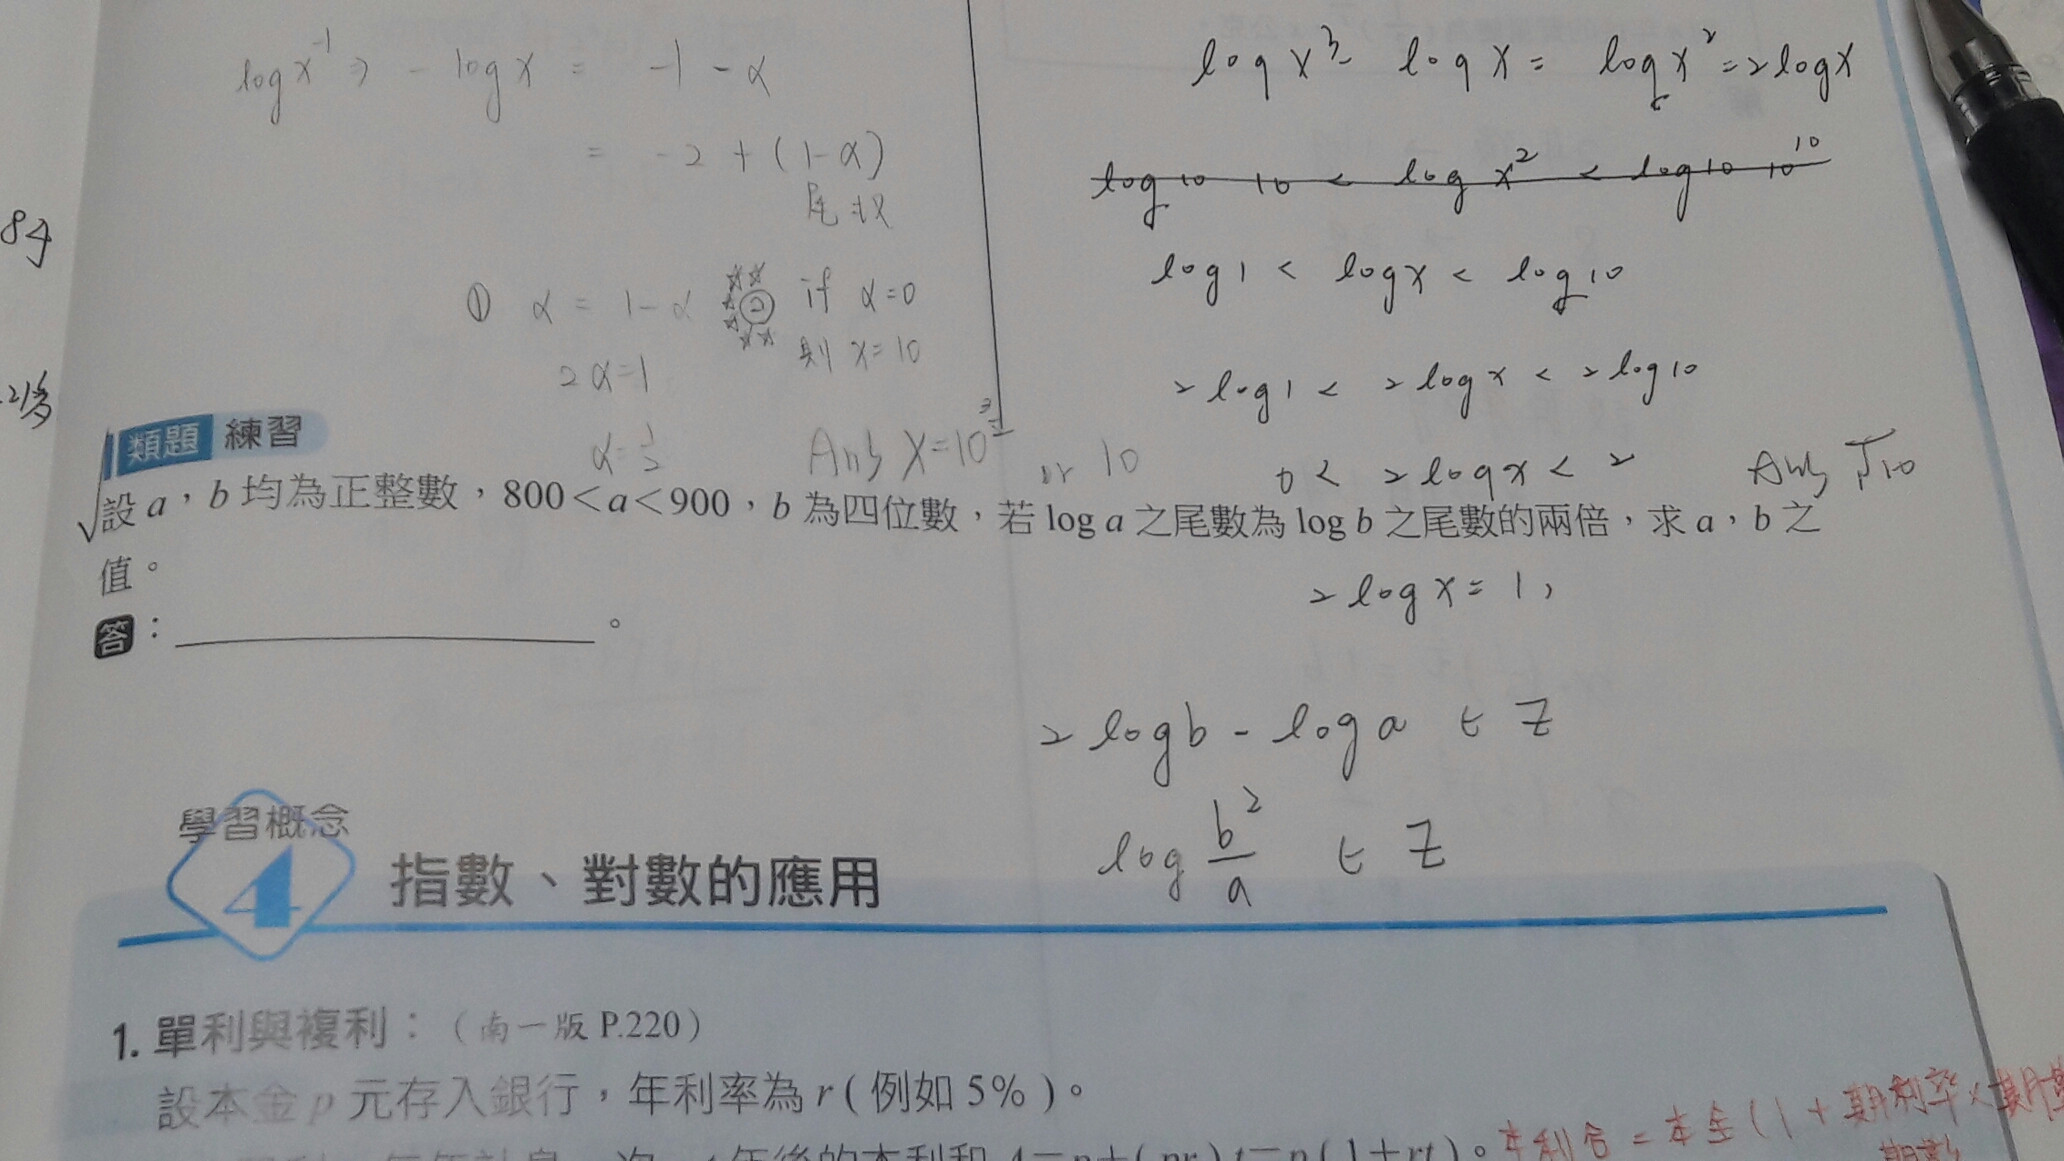 log x⁻¹ ⇒ - log x = -1 - α
= -2 + (1-α)
尾数
① α = 1-α
2α=1
α=1/2
② if α=0
則 x=10
Ans x=10^(3/2) or 10
log x³ - log x = log x² = 2 log x
log₁₀ 10 < log x² < log₁₀ 10¹⁰
log 1 < log x < log 10
2 log 1 < 2 log x < 2 log 10
0 < 2 log x < 2
Ans √10
類題 練習
設 a,b 均為正整數,800<a<900,b 為四位數,若 log a 之尾數為 log b 之尾數的兩倍,求 a,b 之
值。
答:。
2 log x = 1,
2 log b - log a ∈ Z
log b²/a ∈ Z
學習概念
4 指數、對數的應用
1. 單利與複利:(南一版 P.220)
設本金 p 元存入銀行,年利率為 r ( 例如 5% )。
本利合 = 本金 (1 + 期利率 ×